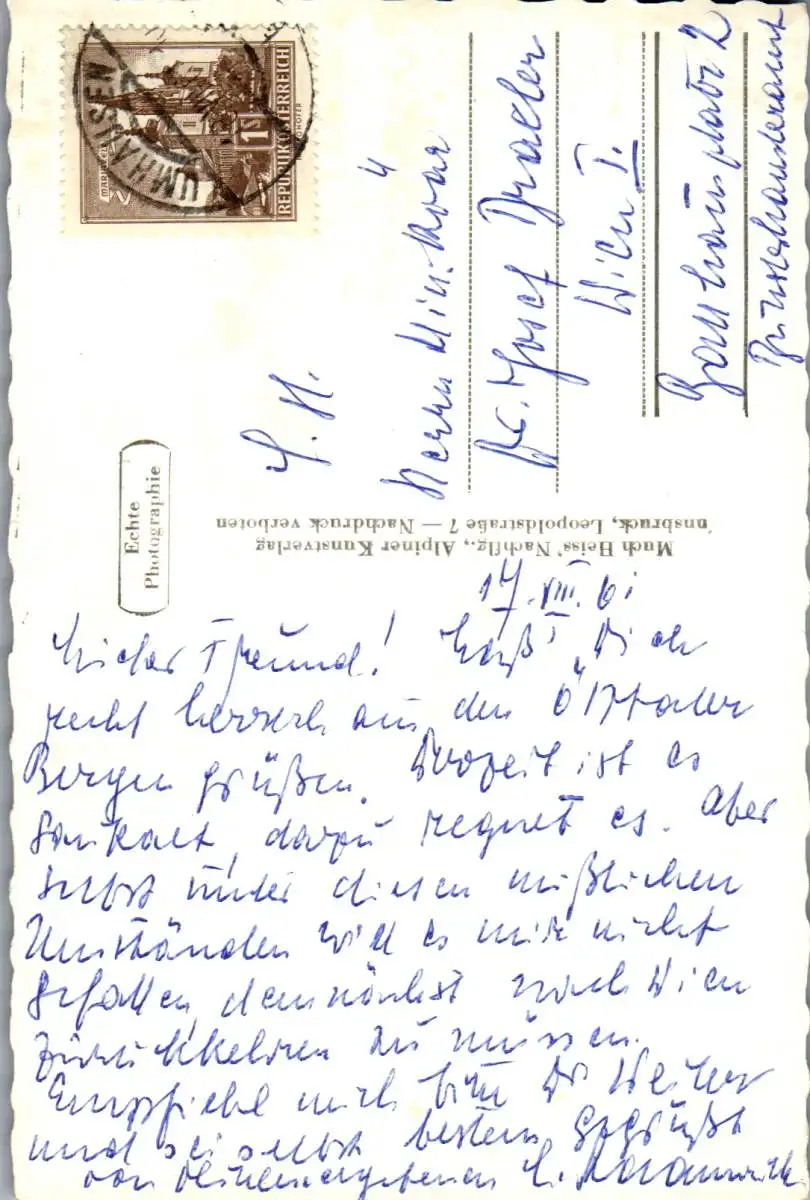 REPUBLIK ÖSTERREICH
1S
UMHAUSEN
S. H.
Herrn Min. Koär
Dr. Josef
Wien I.
Ballhausplatz 2
Bundeskanzleramt
Echte
Photographie
Much Heiss' Nachflg., Alpiner Kunstverlag
Innsbruck, Leopoldstraße 7 — Nachdruck verboten
17. VIII. 61
Lieber Freund! Laß Dich
recht herzlich aus den Ötztaler
Bergen grüßen. Derzeit ist es
saukalt, dazu regnet es. Aber
selbst unter diesen mißlichen
Umständen will es mir nicht
gefallen, demnächst nach Wien
zurückkehren zu müssen.
Empfiehl mich bitte Dr
und sei selbst bestens gegrüßt
von Deinem ergebenen